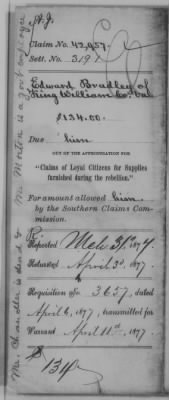 Claim No. 42,957.
Sett. No. 3191
Edward Bradley of
King William Co. Va.
$134.00.
Due him
OUT OF THE APPROPRIATION FOR
"Claims of Loyal Citizens for Supplies
furnished during the rebellion."
For amount allowed him
by the Southern Claims Com-
mission.
R.
Reported Mch 31st 1877.
Returned April 3d 1877.
Requisition No. 3657, dated
April 6, 1877, transmitted for
Warrant April 11th, 1877.
$134
Mr. Chandler is dead & Mr. Morton is a Govt employee